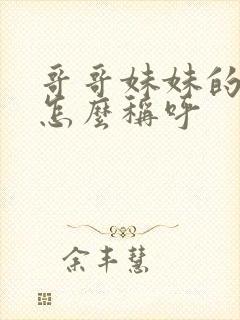 哥哥妹妹的
怎麼稱呼
余丰慧